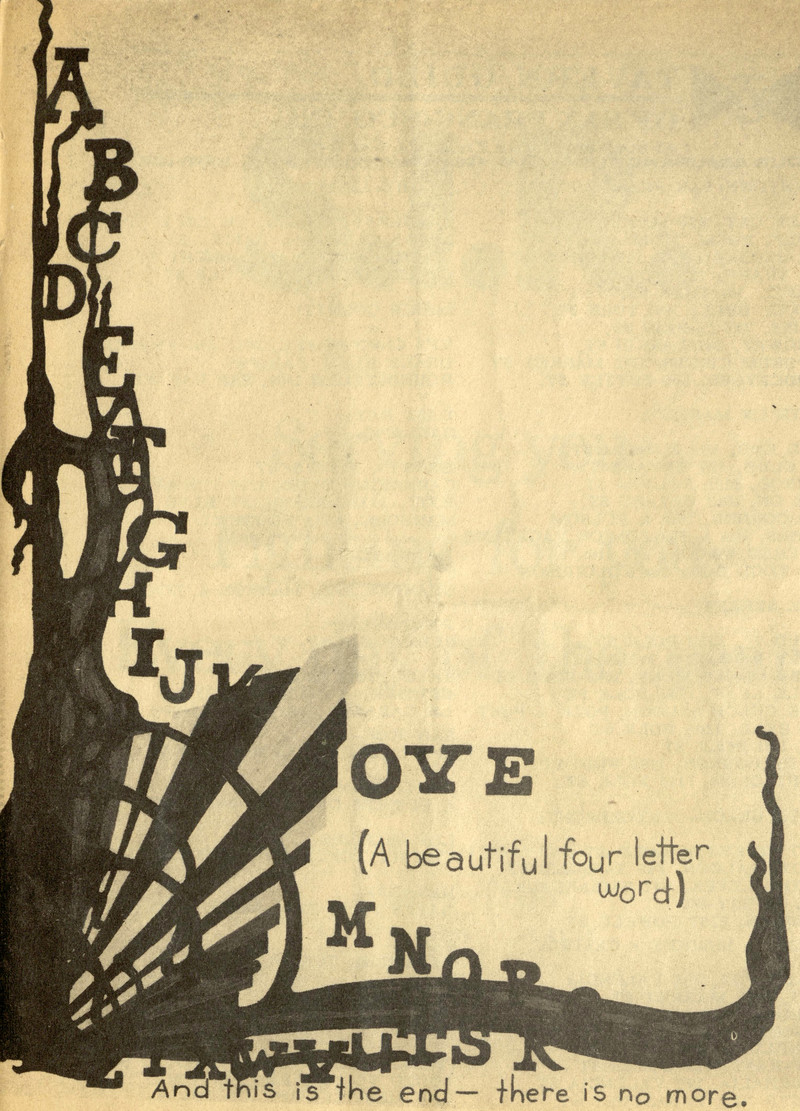 A
B
C
D
E
F
G
H
I
J
K
OVE
(A beautiful four letter
word)
M
N
O
P
Z Y X W V U T S R
And this is the end — there is no more.